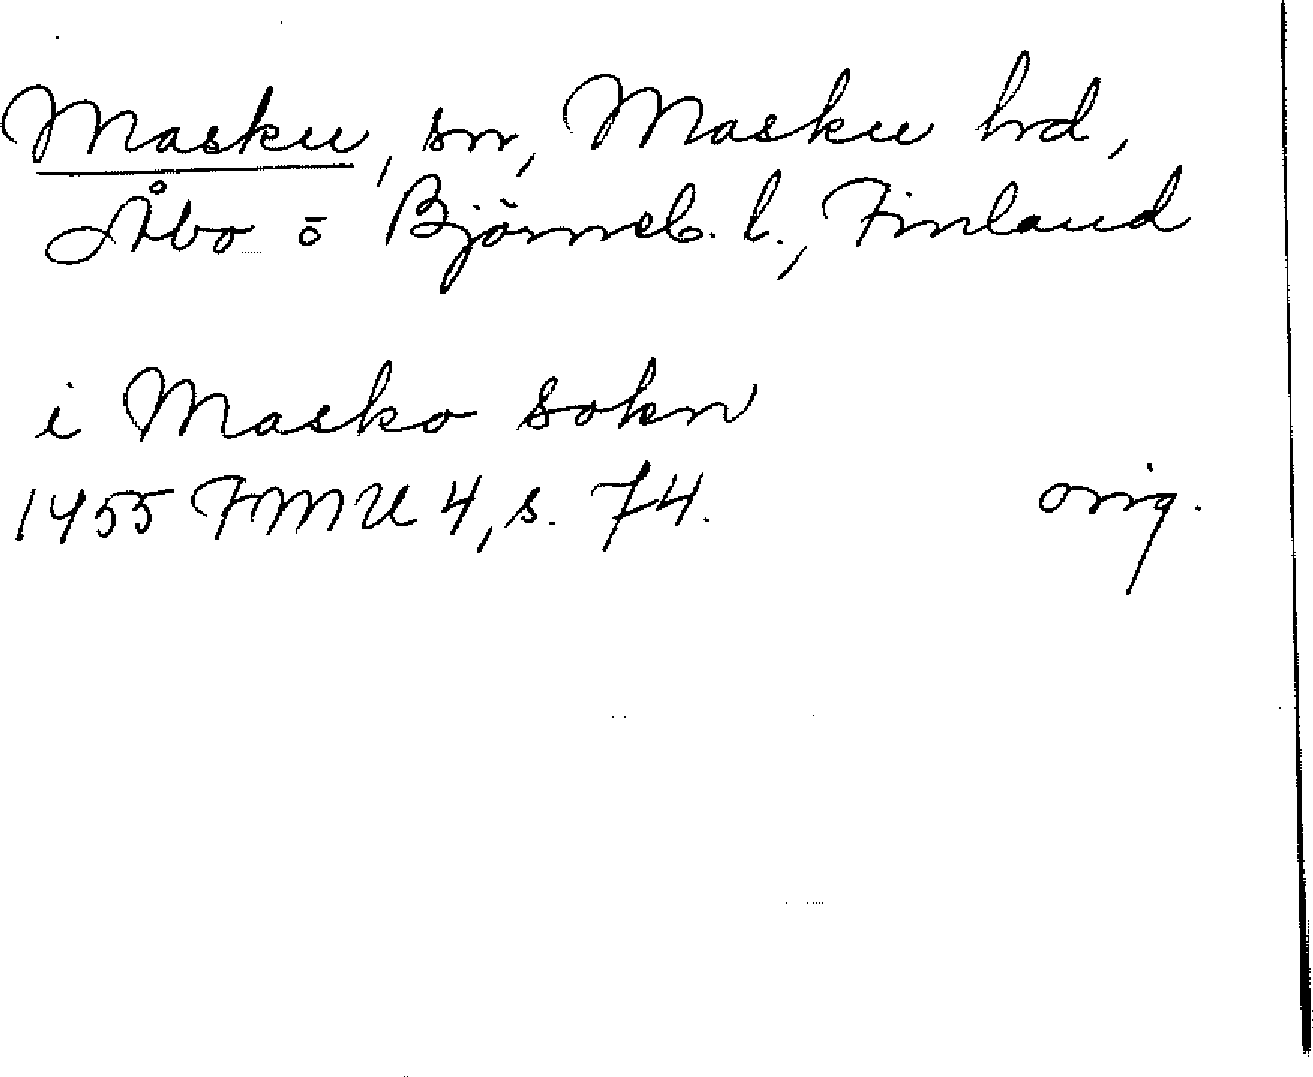 Masku, sn, Masku hd,
Åbo o Björneb. l., Finland
i Masko sokn
1455 FMU 4, s. 74. orig.